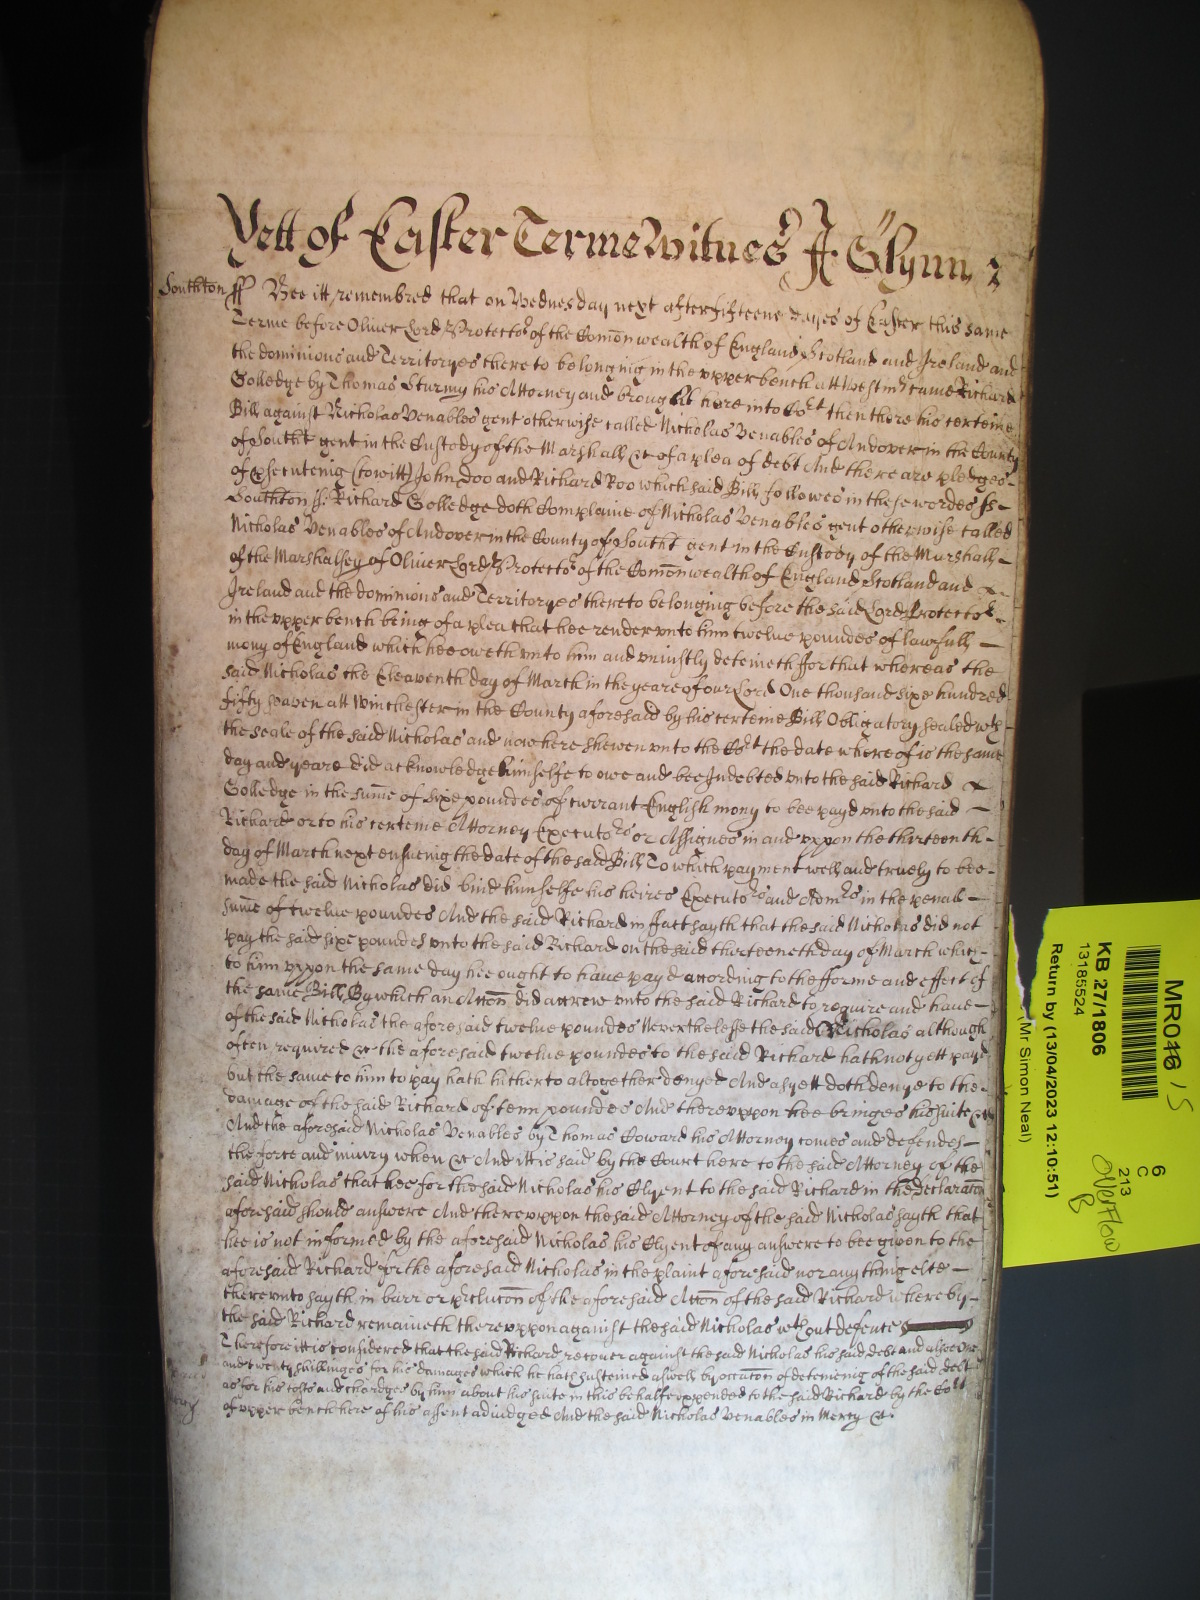 Yett of Easter Terme Witnes J Glynn
Southton ss Bee itt remembred that on Wednesday next after fifteene dayes of Easter this same
Terme before Oliver Lord Protector of the Comonwealth of England Scotland and Ireland and
the dominions and Territoryes thereto belonging in the upper bench att Westmr came Richard
Golledge by Thomas Sturmy his Attorney and brought here into Cort then there his certeine
Bill against Nicholas Venables gent otherwise called Nicholas Venables of Andover in the County
of Southt gent in the Custody of the Marshall &c of a plea of debt And there are pledges
of psecuteing (towitt) John Doo and Richard Roo which said Bill followes in these wordes ss
Southton ss: Richard Golledge doth Complaine of Nicholas Venables gent otherwise called
Nicholas Venables of Andover in the County of Southt gent in the Custody of the Marshall
of the Marshalsey of Oliver Lord Protector of the Comonwealth of England Scotland and
Ireland and the dominions and Territoryes thereto belonging before the said Lord Protector
in the upper bench being of a plea that hee render unto him twelve poundes of lawfull
mony of England which hee oweth unto him and uniustly deteineth ffor that whereas the
said Nicholas the Eleaventh day of March in the yeare of our Lord One thousand sixe hundred
fifty seaven att Winchester in the County aforesaid by his certeine Bill Obligatory sealed wth
the seale of the said Nicholas and now here shewen unto the Cort the date whereof is the same
day and yeare did acknowledge himselfe to owe and bee Indebted unto the said Richard
Golledge in the sume of sixe poundes of currant English mony to bee payd unto the said
Richard or to his certeine Attorney Executors or Assignes in and uppon the thirteenth
day of March next ensueing the date of the said Bill To which payment well and truely to bee
made the said Nicholas did bind himselfe his heires Executors and Admrs in the penall
sume of twelve poundes And the said Richard in ffact sayth that the said Nicholas did not
pay the said sixe poundes unto the said Richard on the said thirteeneth day of March which
to him uppon the same day hee ought to have payd according to the fforme and effect of
the same Bill, By which an Accon did accrew unto the said Richard to require and have
of the said Nicholas the aforesaid twelve poundes Neverthelesse the said Nicholas although
often required &c the aforesaid twelve poundes to the said Richard hath not yett payd
but the same to him to pay hath hitherto altogether denyed And as yett doth denye to the
damage of the said Richard of tenn poundes And thereuppon hee bringes his suite &c
And the aforesaid Nicholas Venables by Thomas Coward his Attorney comes and defendes
the force and iniury when &c And itt is said by the Court here to the said Attorney of the
said Nicholas that hee for the said Nicholas his Clyent to the said Richard in the Declaracon
aforesaid should answere And thereuppon the said Attorney of the said Nicholas sayth that
hee is not informed by the aforesaid Nicholas his Clyent of any answere to bee given to the
aforesaid Richard for the aforesaid Nicholas in the plaint aforesaid nor any thing else
thereunto sayth in barr or preclucon of the aforesaid Accon of the said Richard whereby
the said Richard remaineth thereuppon against the said Nicholas wthout defence
Therefore itt is considered that the said Richard recover against the said Nicholas his said debt and alsoe
and twenty shillinges for his damages which he hath susteined aswell by occacon of deteineing of the said debt
as for his costs and chardges by him about his suite in this behalfe expended to the said Richard by the Cort
of upper bench here of his assent adiudged And the said Nicholas Venables in Mercy &c.
MR046 / 5
KB 27/1806
13185524
Return by (13/04/2023 12:10:51)
(Mr Simon Neal)
6
C
213
Overflow
B